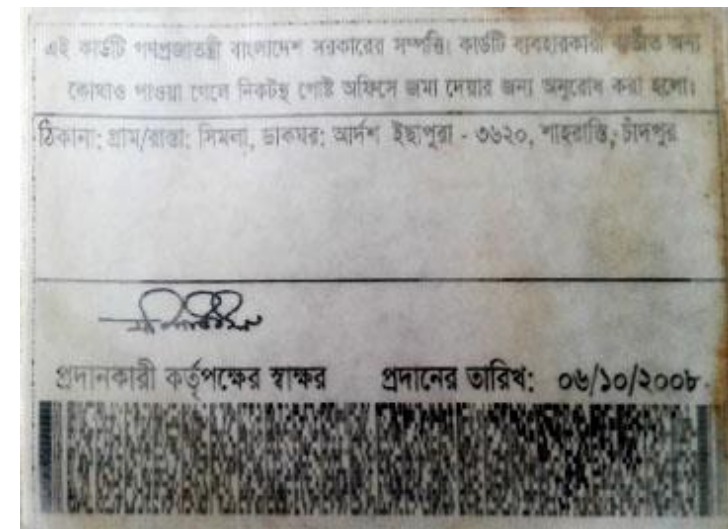 এই কার্ডটি গণপ্রজাতন্ত্রী বাংলাদেশ সরকারের সম্পত্তি। কার্ডটি ব্যবহারকারী ব্যতীত অন্য
কোথাও পাওয়া গেলে নিকটস্থ পোষ্ট অফিসে জমা দেয়ার জন্য অনুরোধ করা হলো।
ঠিকানা: গ্রাম/রাস্তা: সিমলা, ডাকঘর: আর্দশ ইছাপুরা - ৩৬২০, শাহরাস্তি, চাঁদপুর
প্রদানকারী কর্তৃপক্ষের স্বাক্ষর প্রদানের তারিখ: ০৬/১০/২০০৮